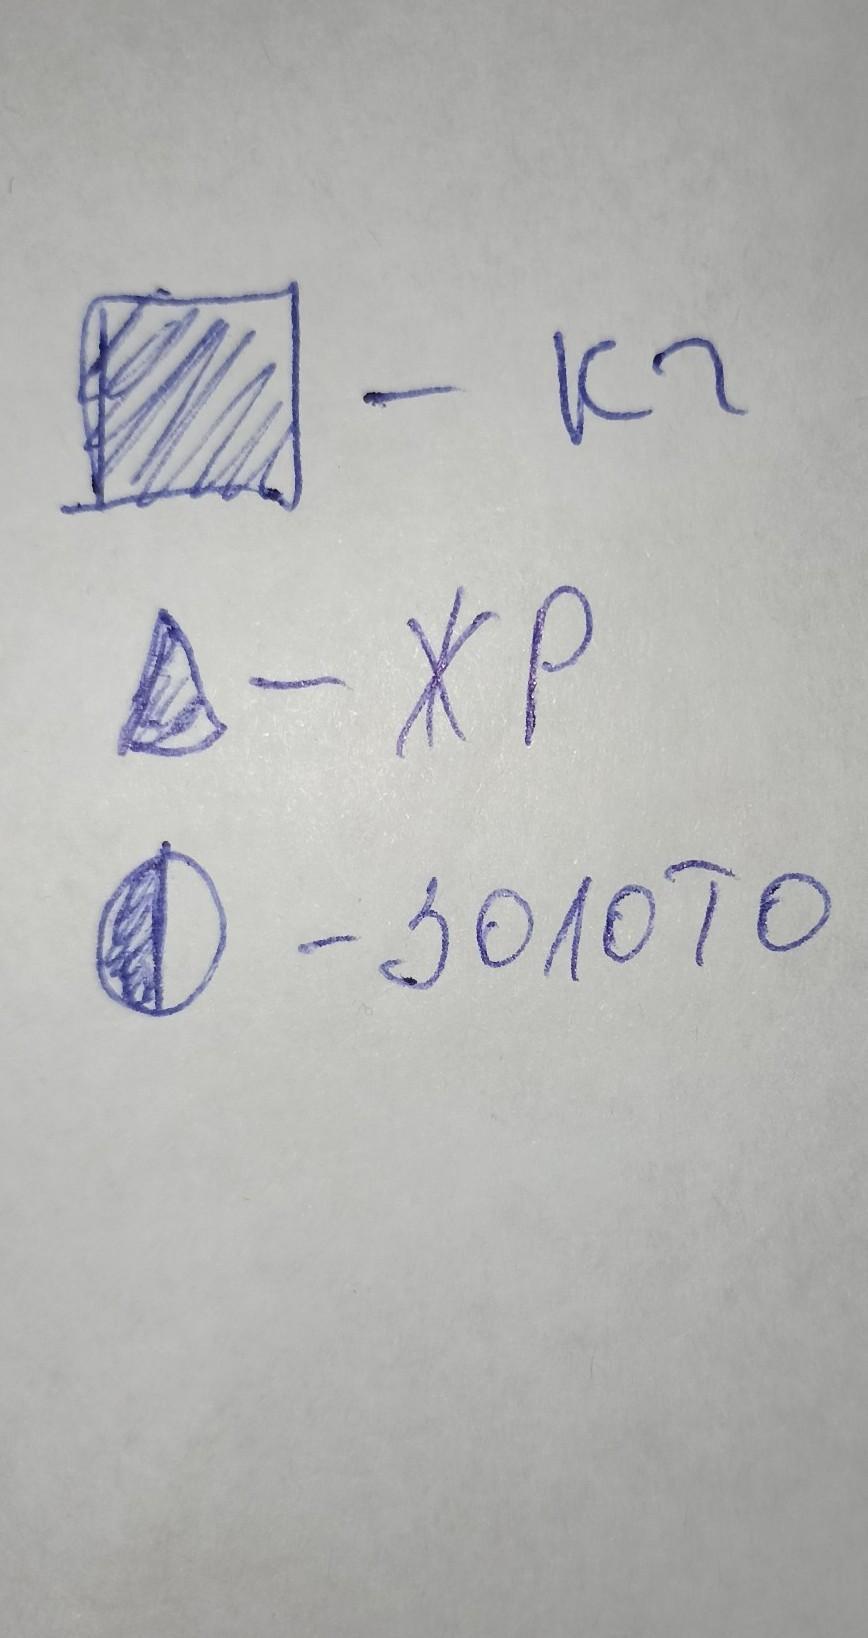 - кг
- ЖР
- ЗОЛОТО